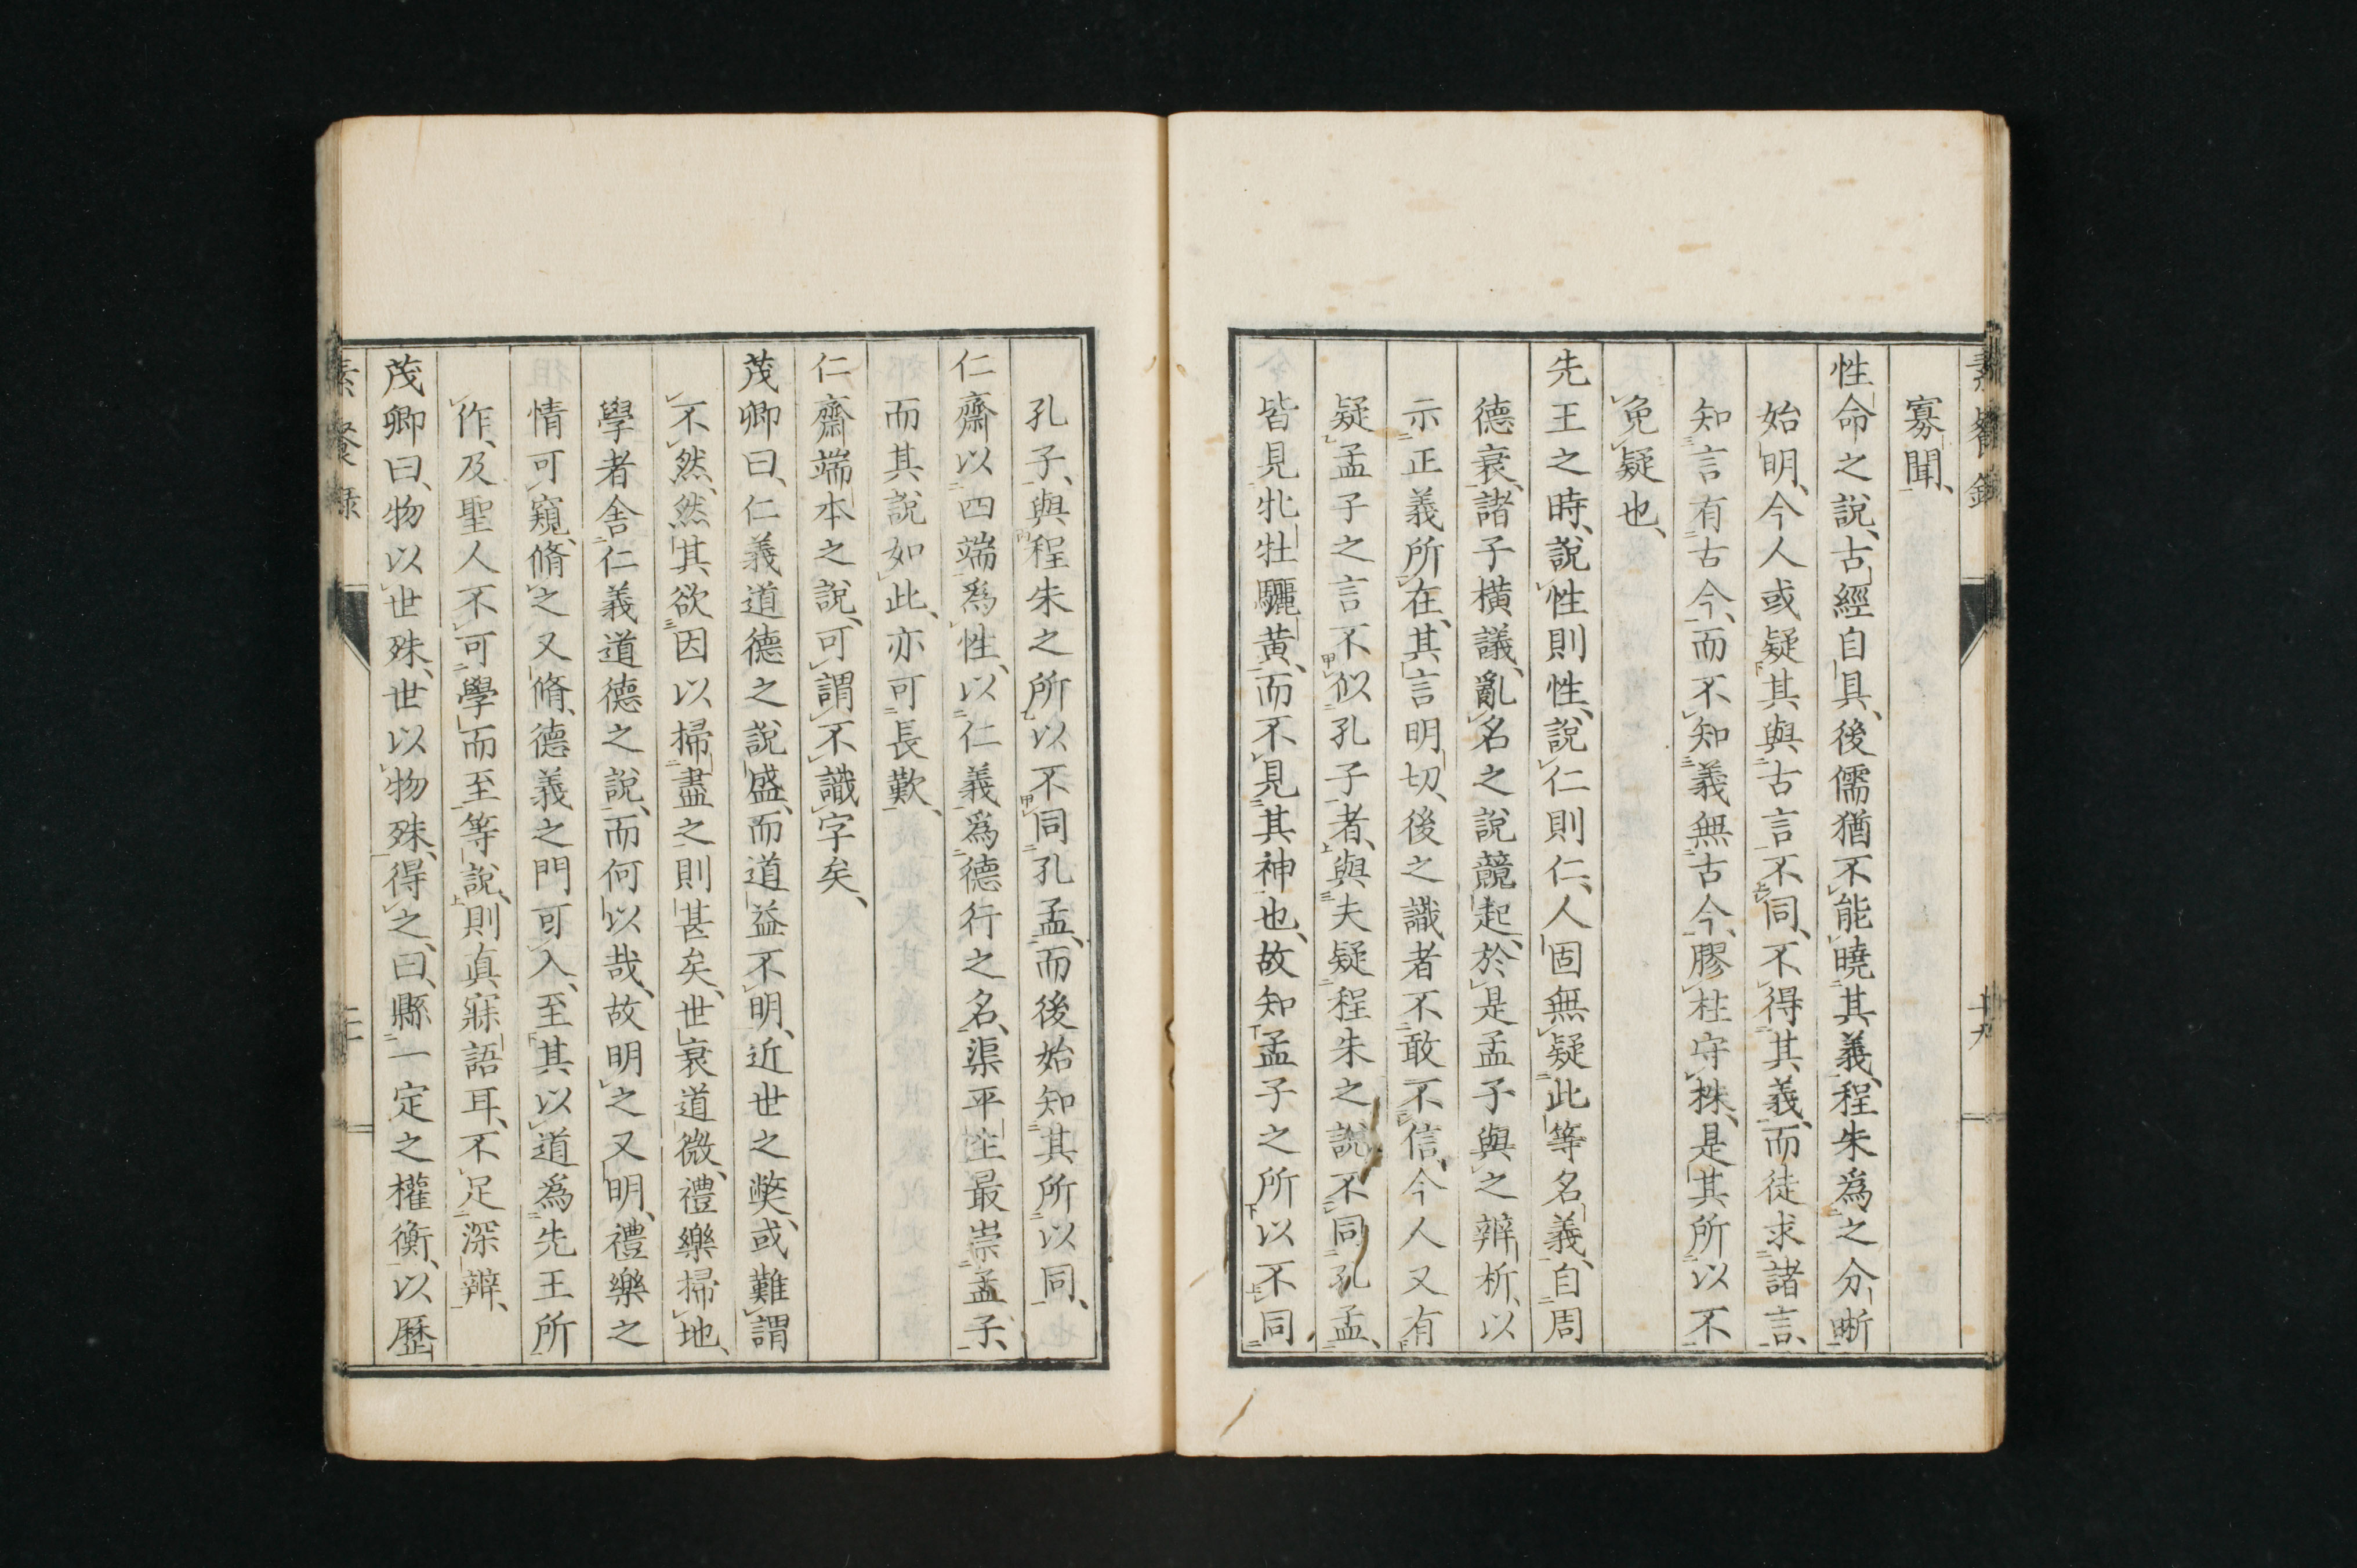 素餐錄
十九
寡聞、
性命之說、古經自具、後儒猶不能曉其義、程朱爲之分晰
始明、今人或疑其與古言不同、不得其義、而徒求諸言、
知言有古今、而不知義無古今、膠柱守株、是其所以不
免疑也、
先王之時、說性則性、說仁則仁、人固無疑此等名義、自周
德衰、諸子橫議、亂名之說競起、於是孟子與之辨析、以
示正義所在、其言明切、後之識者不敢不信、今人又有
疑孟子之言不似孔子者、與夫疑程朱之說不同孔孟、
皆見牝牡驪黃、而不見其神也、故知孟子之所以不同
孔子、與程朱之所以不同孔孟、而後始知其所以同、
仁齋以四端爲性、以仁義爲德行之名、渠平生最崇孟子、
而其說如此、亦可長歎、
仁齋端本之說、可謂不識字矣、
茂卿曰、仁義道德之說盛、而道益不明、近世之獘、或難謂
不然、然其欲因以掃盡之則甚矣、世衰道微、禮樂掃地、
學者舍仁義道德之說、而何以哉、故明之又明、禮樂之
情可窺、脩之又脩、德義之門可入、至其以道爲先王所
作、及聖人不可學而至等說、則真寐語耳、不足深辯、
茂卿曰、物以世殊、世以物殊、得之、曰、縣一定之權衡、以歷
素餐錄
二十